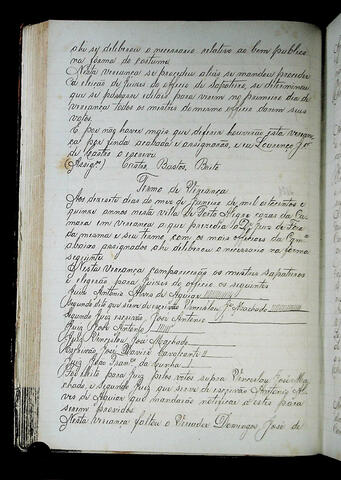 ahi se deliberou o necessario relativo ao bem publico
na forma do costume.
Nesta veriança se procedeu aliás se mandou proceder
a eleição de Juizes do officio de sapateiro, e determinou
que se puzessem editaes para virem no primeiro dia de
veriança todos os mestres do mesmo officio darem seus
votos.
E por não haver mais que deferir houverão esta verean-
ça por finda acabada e assignarão, eu Lourenço Jr.
de Castro o escrevi
Bastos, Brito
Termo de Veriança
Aos dezesete dias do mez de Janeiro de mil oitocentos e
quinze annos nesta villa de Porto Alegre cazas da Ca-
mara em veriança a que prezedio o Dr. Juiz de Fora
da mesma e seu termo, com os mais officiaes da Camª
abaixo assignados ahi deliberou o necessario na forma
seguinte
Nesta veriança comparecerão os mestres sapateiros
e elegerão para Juizes do officio os seguintes
Juiz Antonio Alves de Aguiar
Segundo dito que serve de escrivão Venceslau Je Machado
Segundo Juiz escrivão, José Antonio
Juiz José Antonio
Juiz Venceslau José Machado
Escrivão José Xavier Cavalcanti
Juiz João da Cunha
Foi eleito para Juiz pelos votos supra Venceslau José Ma-
chado, e Segundo Juiz que serve de escrivão Antonio Al-
ves de Aguiar que mandarão notificar a estes para
serem providos.
Nesta veriança faltou o Vereador Domingos José de